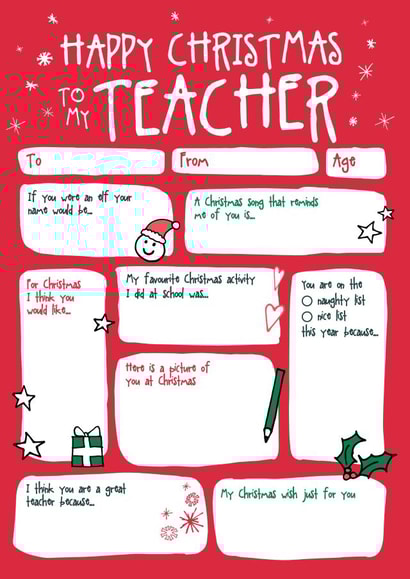 HAPPY CHRISTMAS
TO MY TEACHER
To
From
Age
If you were an elf your
name would be...
A Christmas song that reminds
me of you is...
For Christmas
I think you
would like...
My favourite Christmas activity
I did at school was...
You are on the
naughty list
nice list
this year because...
Here is a picture of
you at Christmas
I think you are a great
teacher because...
My Christmas wish just for you